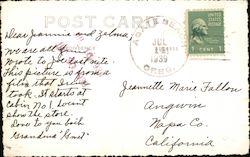 POST CARD
Dear Jeannie and Zelma,
We are all
wrote to Joe last nite.
This picture is from a
film that Irene
took. It starts at
cabin No 1. doesnt
show the store.
Love to you both
Grandma
AGATE BEACH
JUL
1939
OREG.
1 CENT 1
Jeannette Marie Fallon
Angwin
Napa Co.
California